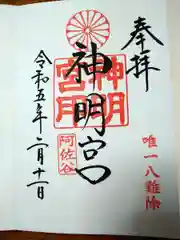 奉拝
唯一八難除
神明宮
神明
宮
阿佐谷
令和五年二月十一日